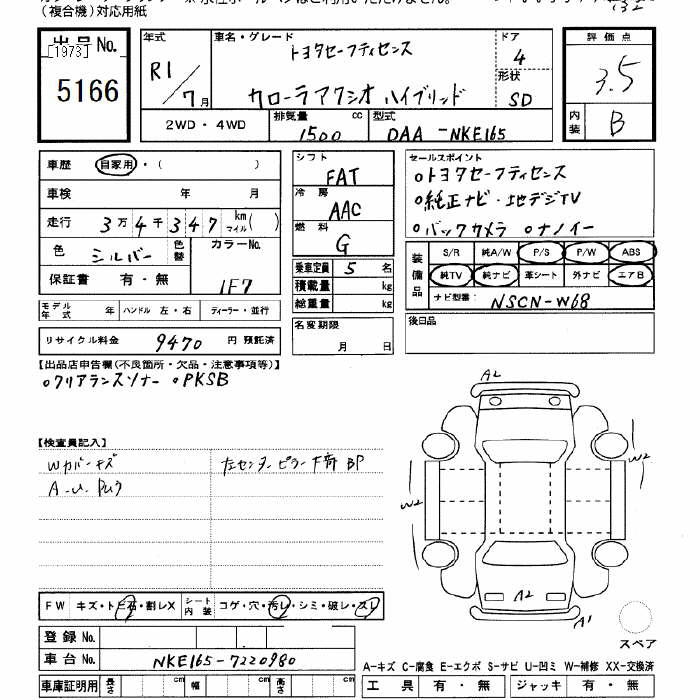 (複合機)対応用紙
出品No.
[1973]
5166
年式 車名・グレード ドア
トヨタセーフティセンス
R1/7月 4
形状
カローラアクシオ ハイブリッド SD
2WD・4WD 排気量 1500 cc 型式 DAA-NKE165
評価点
3.5
内装 B
車歴 自家用・( )
車検 年 月
走行 3万4千347 km マイル( )
色 シルバー 色替 カラーNo. 1F7
保証書 有・無
シフト FAT
冷房 AAC
燃料 G
乗車定員 5 名
積載量 kg
総重量 kg
セールスポイント
○トヨタセーフティセンス
○純正ナビ・地デジTV
○バックカメラ ○ナノイー
装備品 S/R 純A/W P/S P/W ABS
純TV 純ナビ 革シート 外ナビ エアB
ナビ型番 NSCN-W68
モデル年式 年 ハンドル 左・右 ディーラー・並行
名変期限 月 日
後日品
リサイクル料金 9470 円 預託済
【出品店申告欄(不良箇所・欠品・注意事項等)】
○クリアランスソナー ○PKSB
【検査員記入】
Wカバーキズ
左センターピラー下部 BP
A2
W2
W2
A2
A1
スペア
FW キズ・トビ石・割レX シート内装 コゲ・穴・汚レ・シミ・破レ・スレ
登録No.
車台No. NKE165-7220980
A-キズ C-腐食 E-エクボ S-サビ U-凹ミ W-補修 XX-交換済
車庫証明用 長さ cm 幅 cm 高さ cm
工具 有・無 ジャッキ 有・無